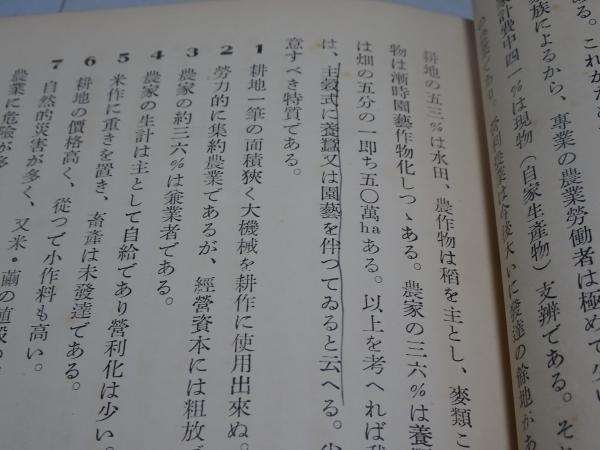 ある。これがため
族によるから、專業の農業勞働者は極めて少い
家計費中四一%は現物（自家生産物）支辨である。そ
營利農業は今後大いに發達の餘地があ
耕地の五三%は水田、農作物は稻を主とし、麥類こ
物は漸時園藝作物化しつゝある。農家の三六%は養蠶
は畑の五分の一即ち五〇萬haある。以上を考へれば我
は、主穀式に養蠶又は園藝を伴つてゐると云へる。少
意すべき特質である。
1 耕地一筆の面積狹く大機械を耕作に使用出來ぬ。
2 勞力的に集約農業であるが、經營資本には粗放で
3 農家の約三六%は兼業者である。
4 農家の生計は主として自給であり營利化は少い。
5 米作に重きを置き、畜産は未發達である。
6 耕地の價格高く、從つて小作料も高い。
7 自然的災害が多く、又米・繭の値段の
農業に危險が多